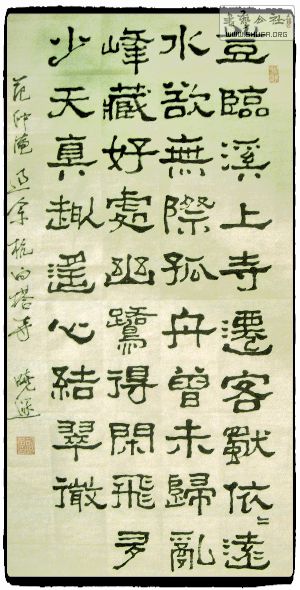 登臨溪上寺遷客依〻遠
水欲無際孤舟曾未歸亂
峰藏好處幽鷺得閑飛多
少天真趣遙心結翠微
范仲淹過余杭白塔寺 曉
書藝公社